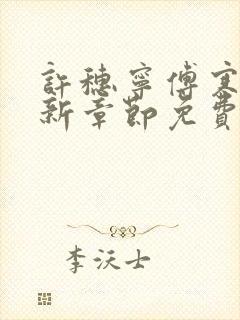 許穗寧傅寒
新章節免費
李沃士